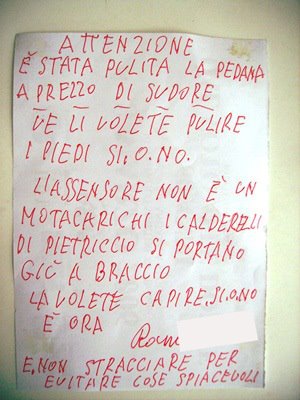 ATTENZIONE
È STATA PULITA LA PEDANA
A PREZZO DI SUDORE
VE LI VOLETE PULIRE
I PIEDI SI.O.NO.
L'ASSENSORE NON È UN
MOTACARICHI I CALDERELLI
DI PIETRICCIO SI PORTANO
GIÙ A BRACCIO
LA VOLETE CAPIRE.SI.O.NO
È ORA
E.NON STRACCIARE PER
EVITARE COSE SPIACEVOLI